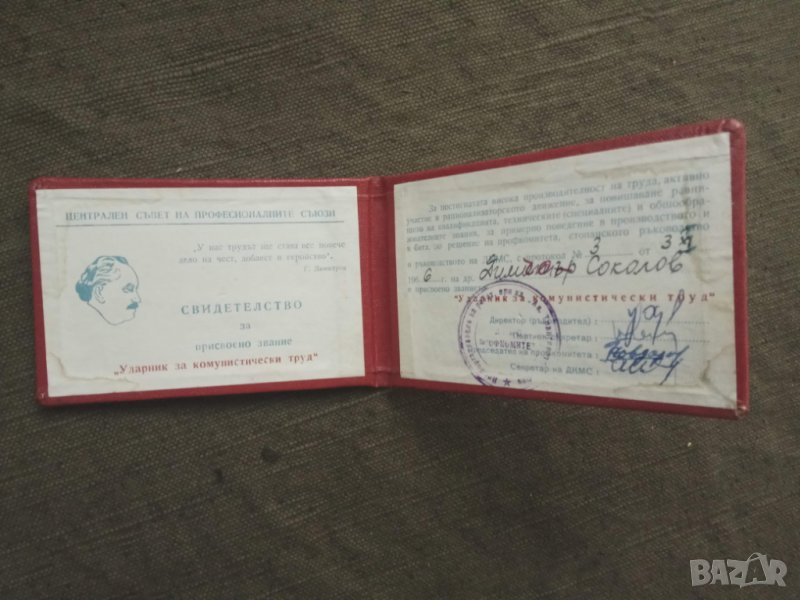 ЦЕНТРАЛЕН СЪВЕТ НА ПРОФЕСИОНАЛНИТЕ СЪЮЗИ
„У нас трудът ще става все повече
дело на чест, доблест и геройство“.
Г. Димитров
СВИДЕТЕЛСТВО
за
присвоено звание
„Ударник за комунистически труд“
За постигнатата висока производителност на труда, активно
участие в рационализаторското движение, за повишаване равни-
щето на квалификацията, техническите (специалните) и общообра-
зователните знания, за примерно поведение в производството и
в бита, по решение на профкомитета, стопанското ръководство
и ръководството на ДКМС, с протокол №. 3 от 3 XI
196 6 г. на др. Димитър Соколов
е присвоено званието
"Ударник за комунистически труд"
Директор (ръководител) :
Партиен секретар :
Председател на профкомитета :
Секретар на ДКМС :
ПРОФКОМИТЕТ
BAZAR